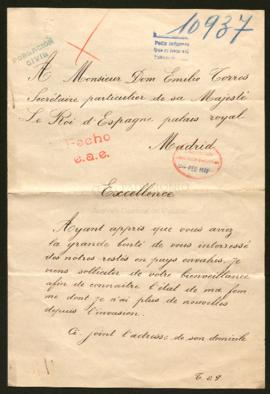 POBLACIÓN CIVIL
10937
A Monsieur Dom Emilio Torres
Secrétaire particulier de sa Majesté
Le Roi d'Espagne palais royal
Madrid
Hecho
e.a.e.
Excellence
Ayant appris que vous aviez
la grande bonté de vous interessé
des notres restés en pays envahis. Je
viens solliciter de votre bienveillance
afin de connaitre l'état de ma fem
me dont je n'ai plus de nouvelles
depuis l'invasion.
Ci joint l'adresse de son domicile